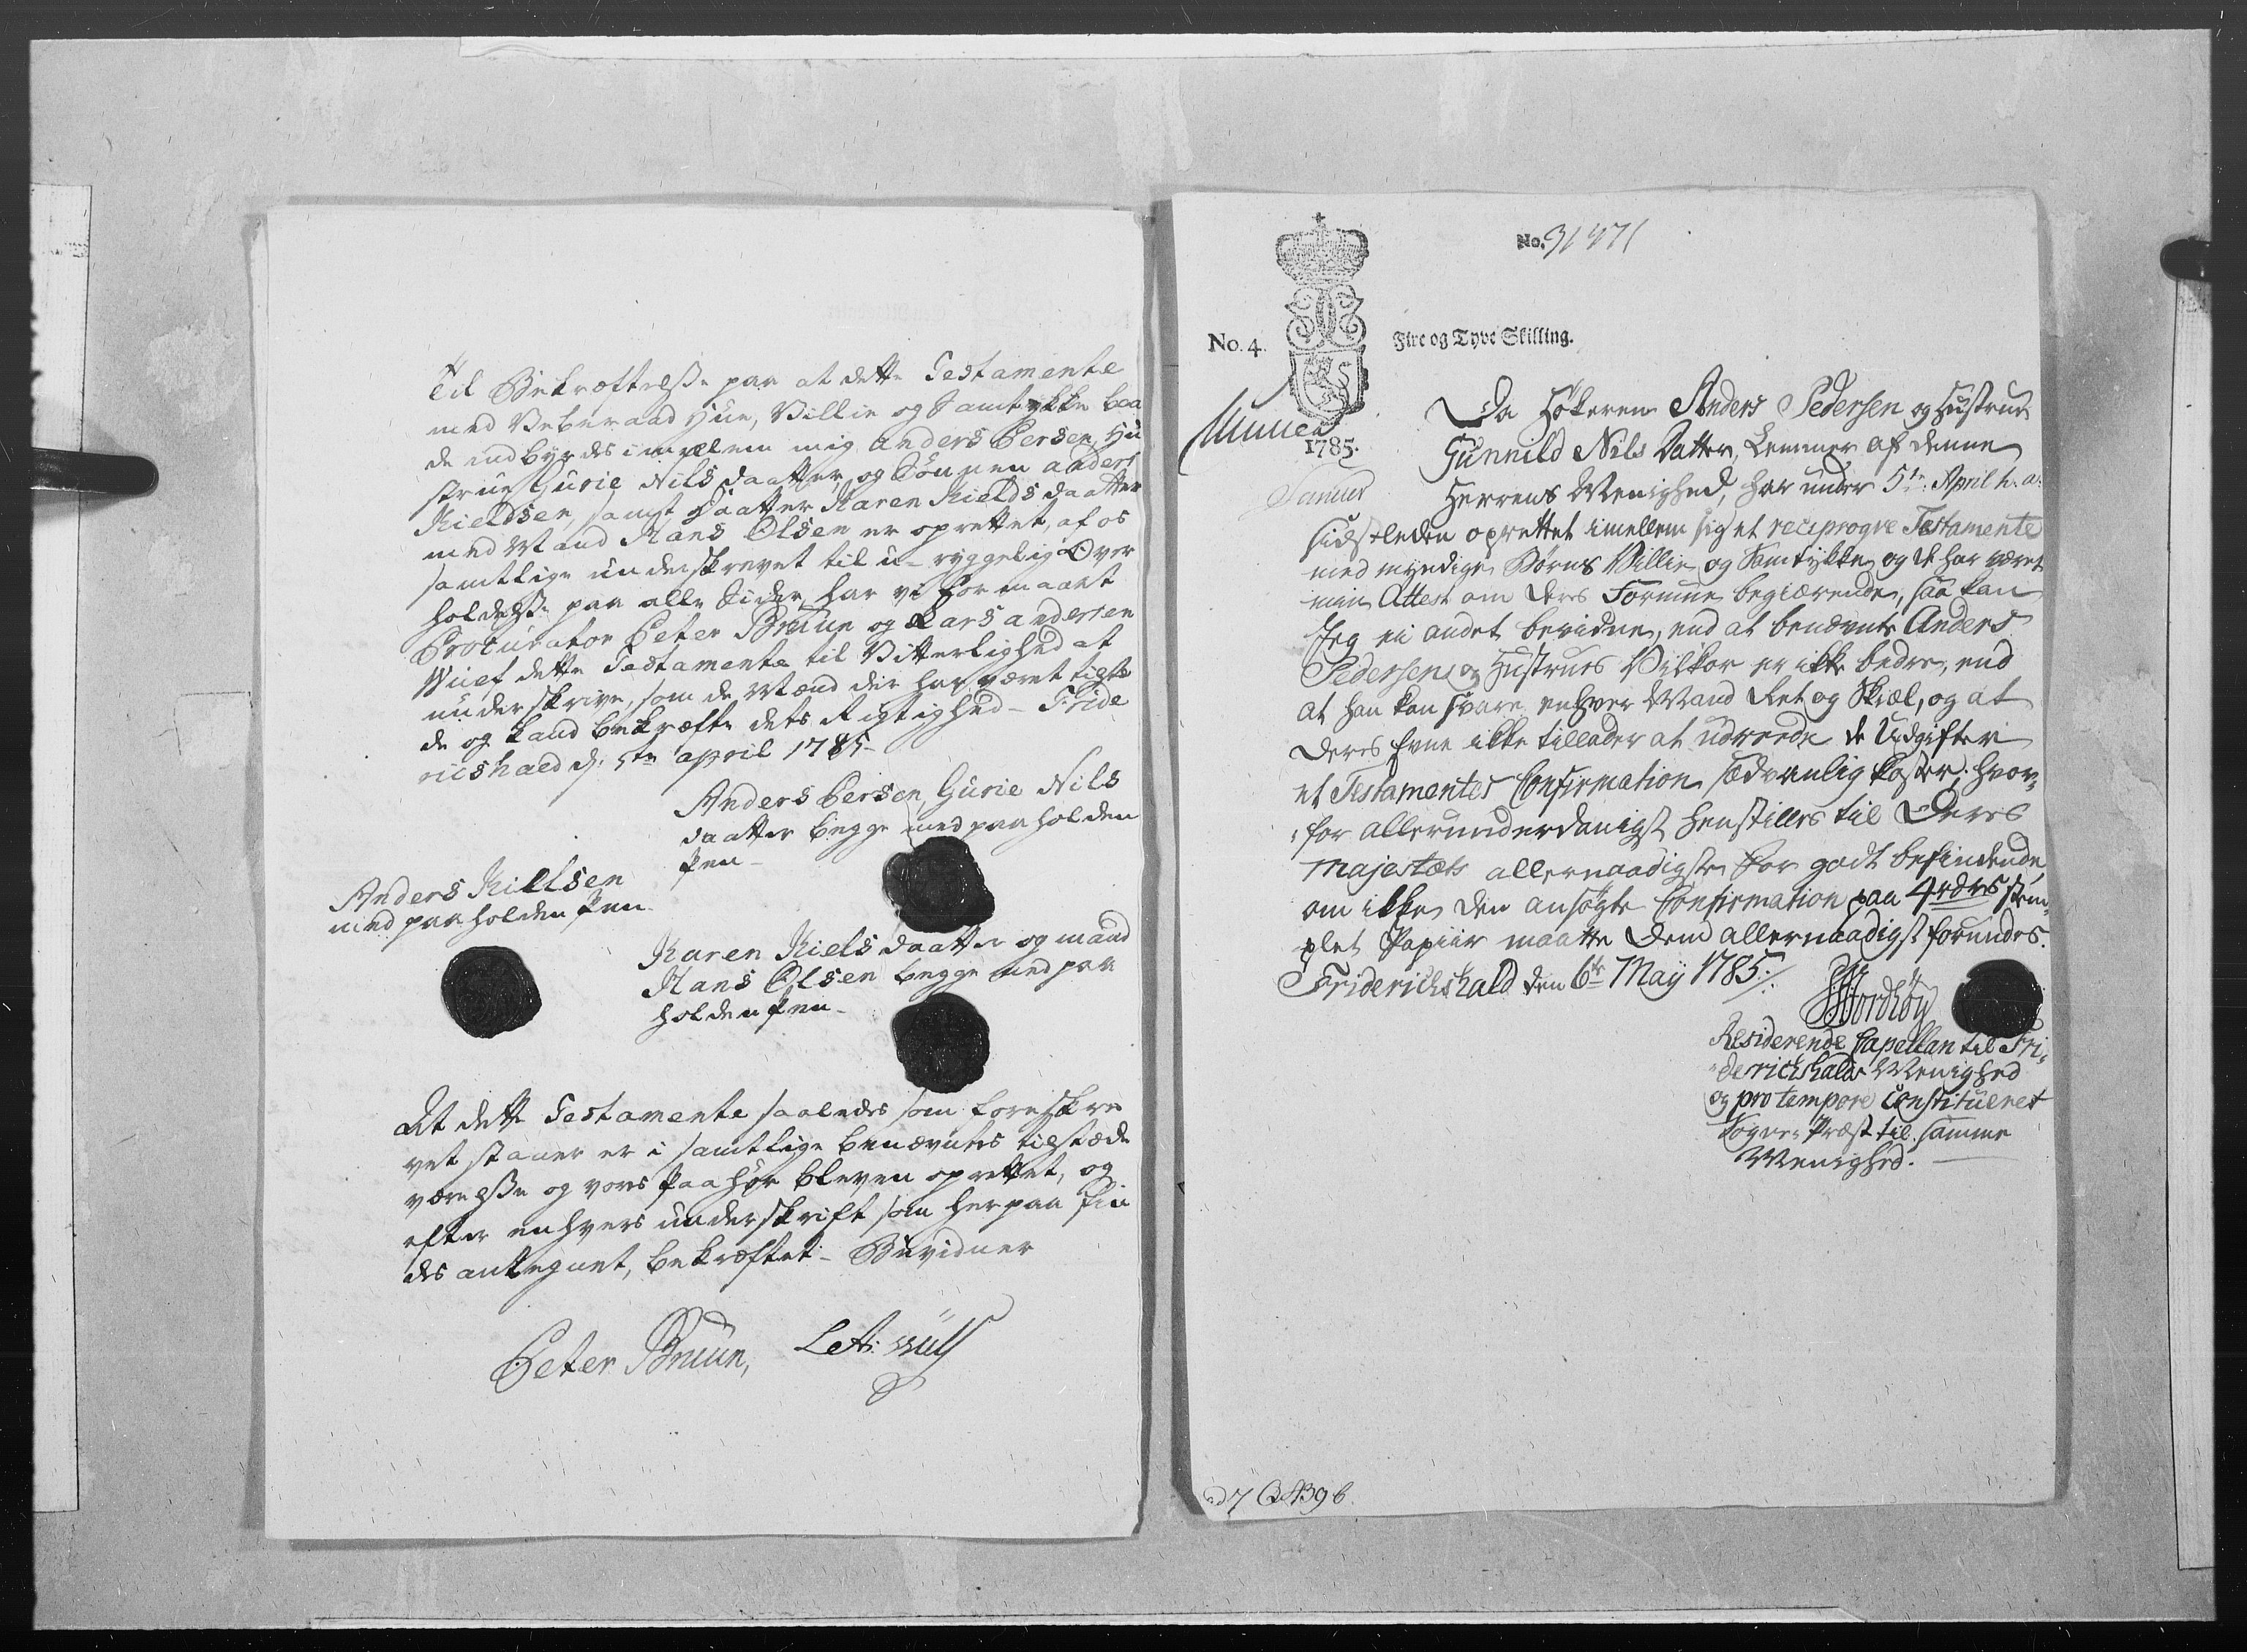 Til Bekræftelße paa at dette Testamente
med Velberaad Hue, Villie og Samtykke baa
de indbyrdes imellem mig Anders Persen, Hu
strue Gurie Nils daatter og Sönnen anders
Kieldsen, samt Daatter Karen Kields daatter
med Mand Hans Olsen er oprettet, af os
samtlige underskrevet til u-ryggelig Over
holdelße paa alle Sider, har vi formaaet
Procurator Peter Bruun og Lars andersen
Wulf dette Testamente til Vitterlighed at
underskrive, som de Mænd der har været tilste
de og kand bekræfte dets Rigtighed - Fride
richshald d: 5te april 1785-
Anders Persen Gurie Nils
daatter begge med paaholden
Pen-
Anders Kiellsen
med paaholden Pen-
Karen Kiels daatter og mand
Hans Olsen begge med paa
holden Pen-
At dette Testamente saaledes som foreskre
vet staaer er i samtlige benævntes tilstæde
værelße og vores Paahør bleven oprettet, og
efter enhvers underskrift som herpaa fin
des antegnet, bekræftet- Bevidner
Peter Bruun, LA: Wulf
No. 31471
No. 4. Fire og Tyve Skilling.
1785.
Da Hökeren Anders Pedersen og Hustrue
Gunnild Nils Datter, Lemmer af denne
Herrens Menighed, har under 5te April h. a.
sidstleden oprettet imellem sig et reciproqve Testamente
med myndige Börns Villie og Samtykke, og de har været
min Attest om deres Formue begiærende, saa kan
Jeg ei andet bevidne, end at benævnte Anders
Pedersens og Hustrues Vilkor er ikke bedre, end
at han kan svare enhver Mand Ret og Skiæl, og at
deres Evne ikke tillader at udreede de Udgifter
et Testamentes Confirmation sædvanlig koster; hvor-
-for allerunderdanigst henstilles til Deres
Majestæts allernaadigste for godt befindende,
om ikke den ansögte Confirmation paa 4rdrs stem-
plet Papiir maatte dem allernaadigst forundes.
Friderichshald den 6te May 1785./.
Residerende Capellan til Fri-
derichshalds Menighed
og pro tempore Constitueret
Sogne-Præst til samme
Menighed.